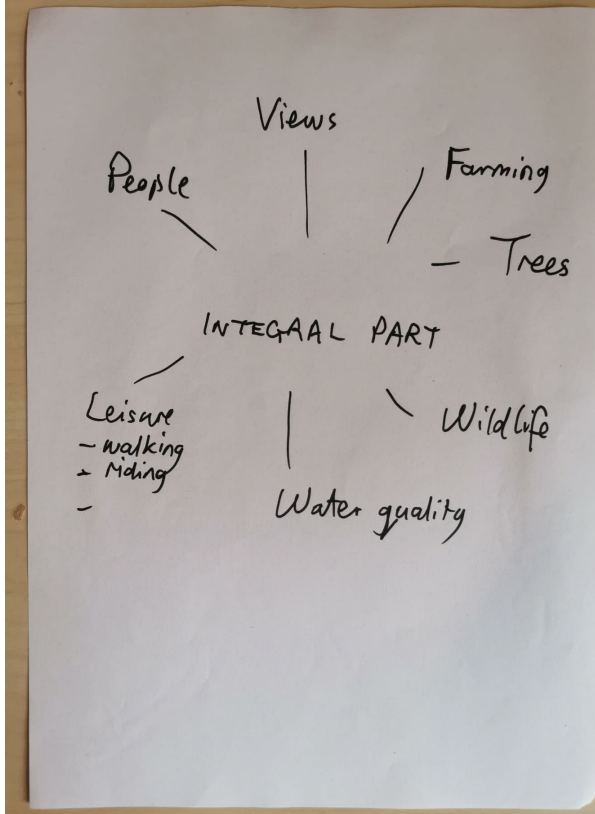 Views
People
Farming
Trees
INTEGRAL PART
Leisure
- walking
- riding
-
Wildlife
Water quality